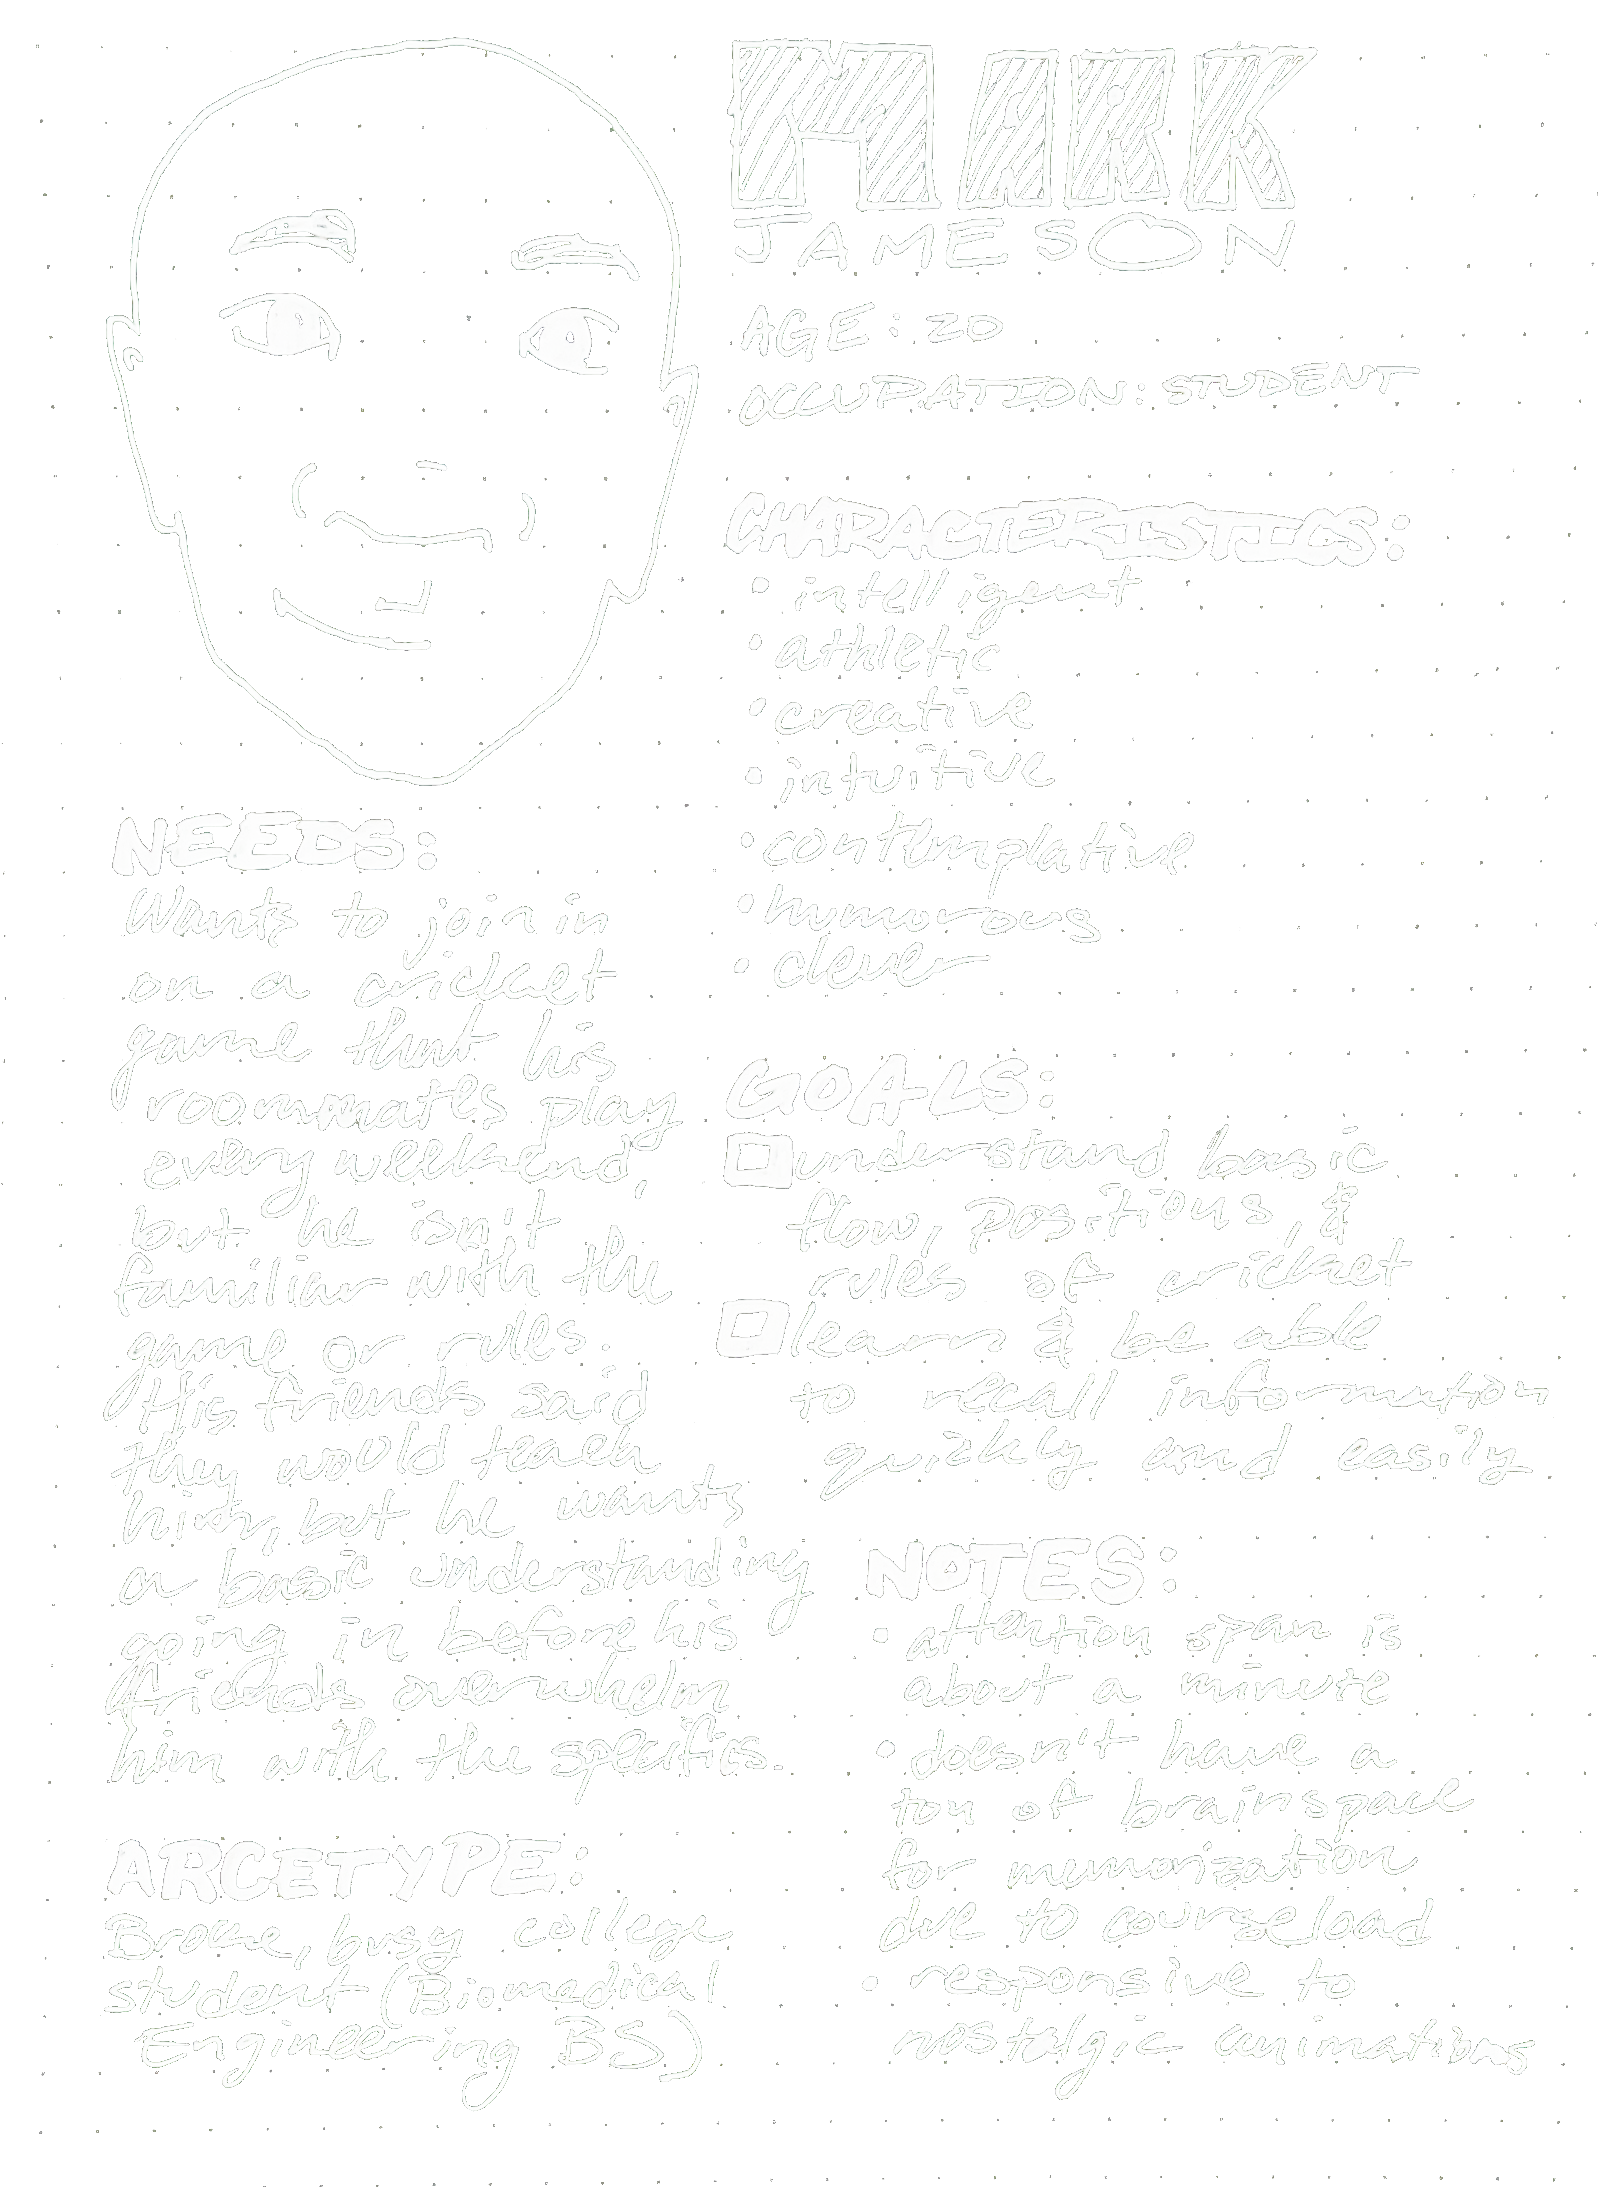 MARK
JAMESON
AGE: 20
OCCUPATION: STUDENT
CHARACTERISTICS:
• intelligent
• athletic
• creative
• intuitive
• contemplative
• humorous
• clever
NEEDS:
Wants to join in
on a cricket
game that his
roommates play
every weekend,
but he isn't
familiar with the
game or rules.
His friends said
they would teach
him, but he wants
a basic understanding
going in before his
friends overwhelm
him with the specifics.
ARCETYPE:
Broke, busy college
student (Biomedical
Engineering BS)
GOALS:
understand basic
flow, positions, &
rules of cricket
learn & be able
to recall information
quickly and easily
NOTES:
• attention span is
about a minute
• doesn't have a
ton of brainspace
for memorization
due to courseload
• responsive to
nostalgic animations